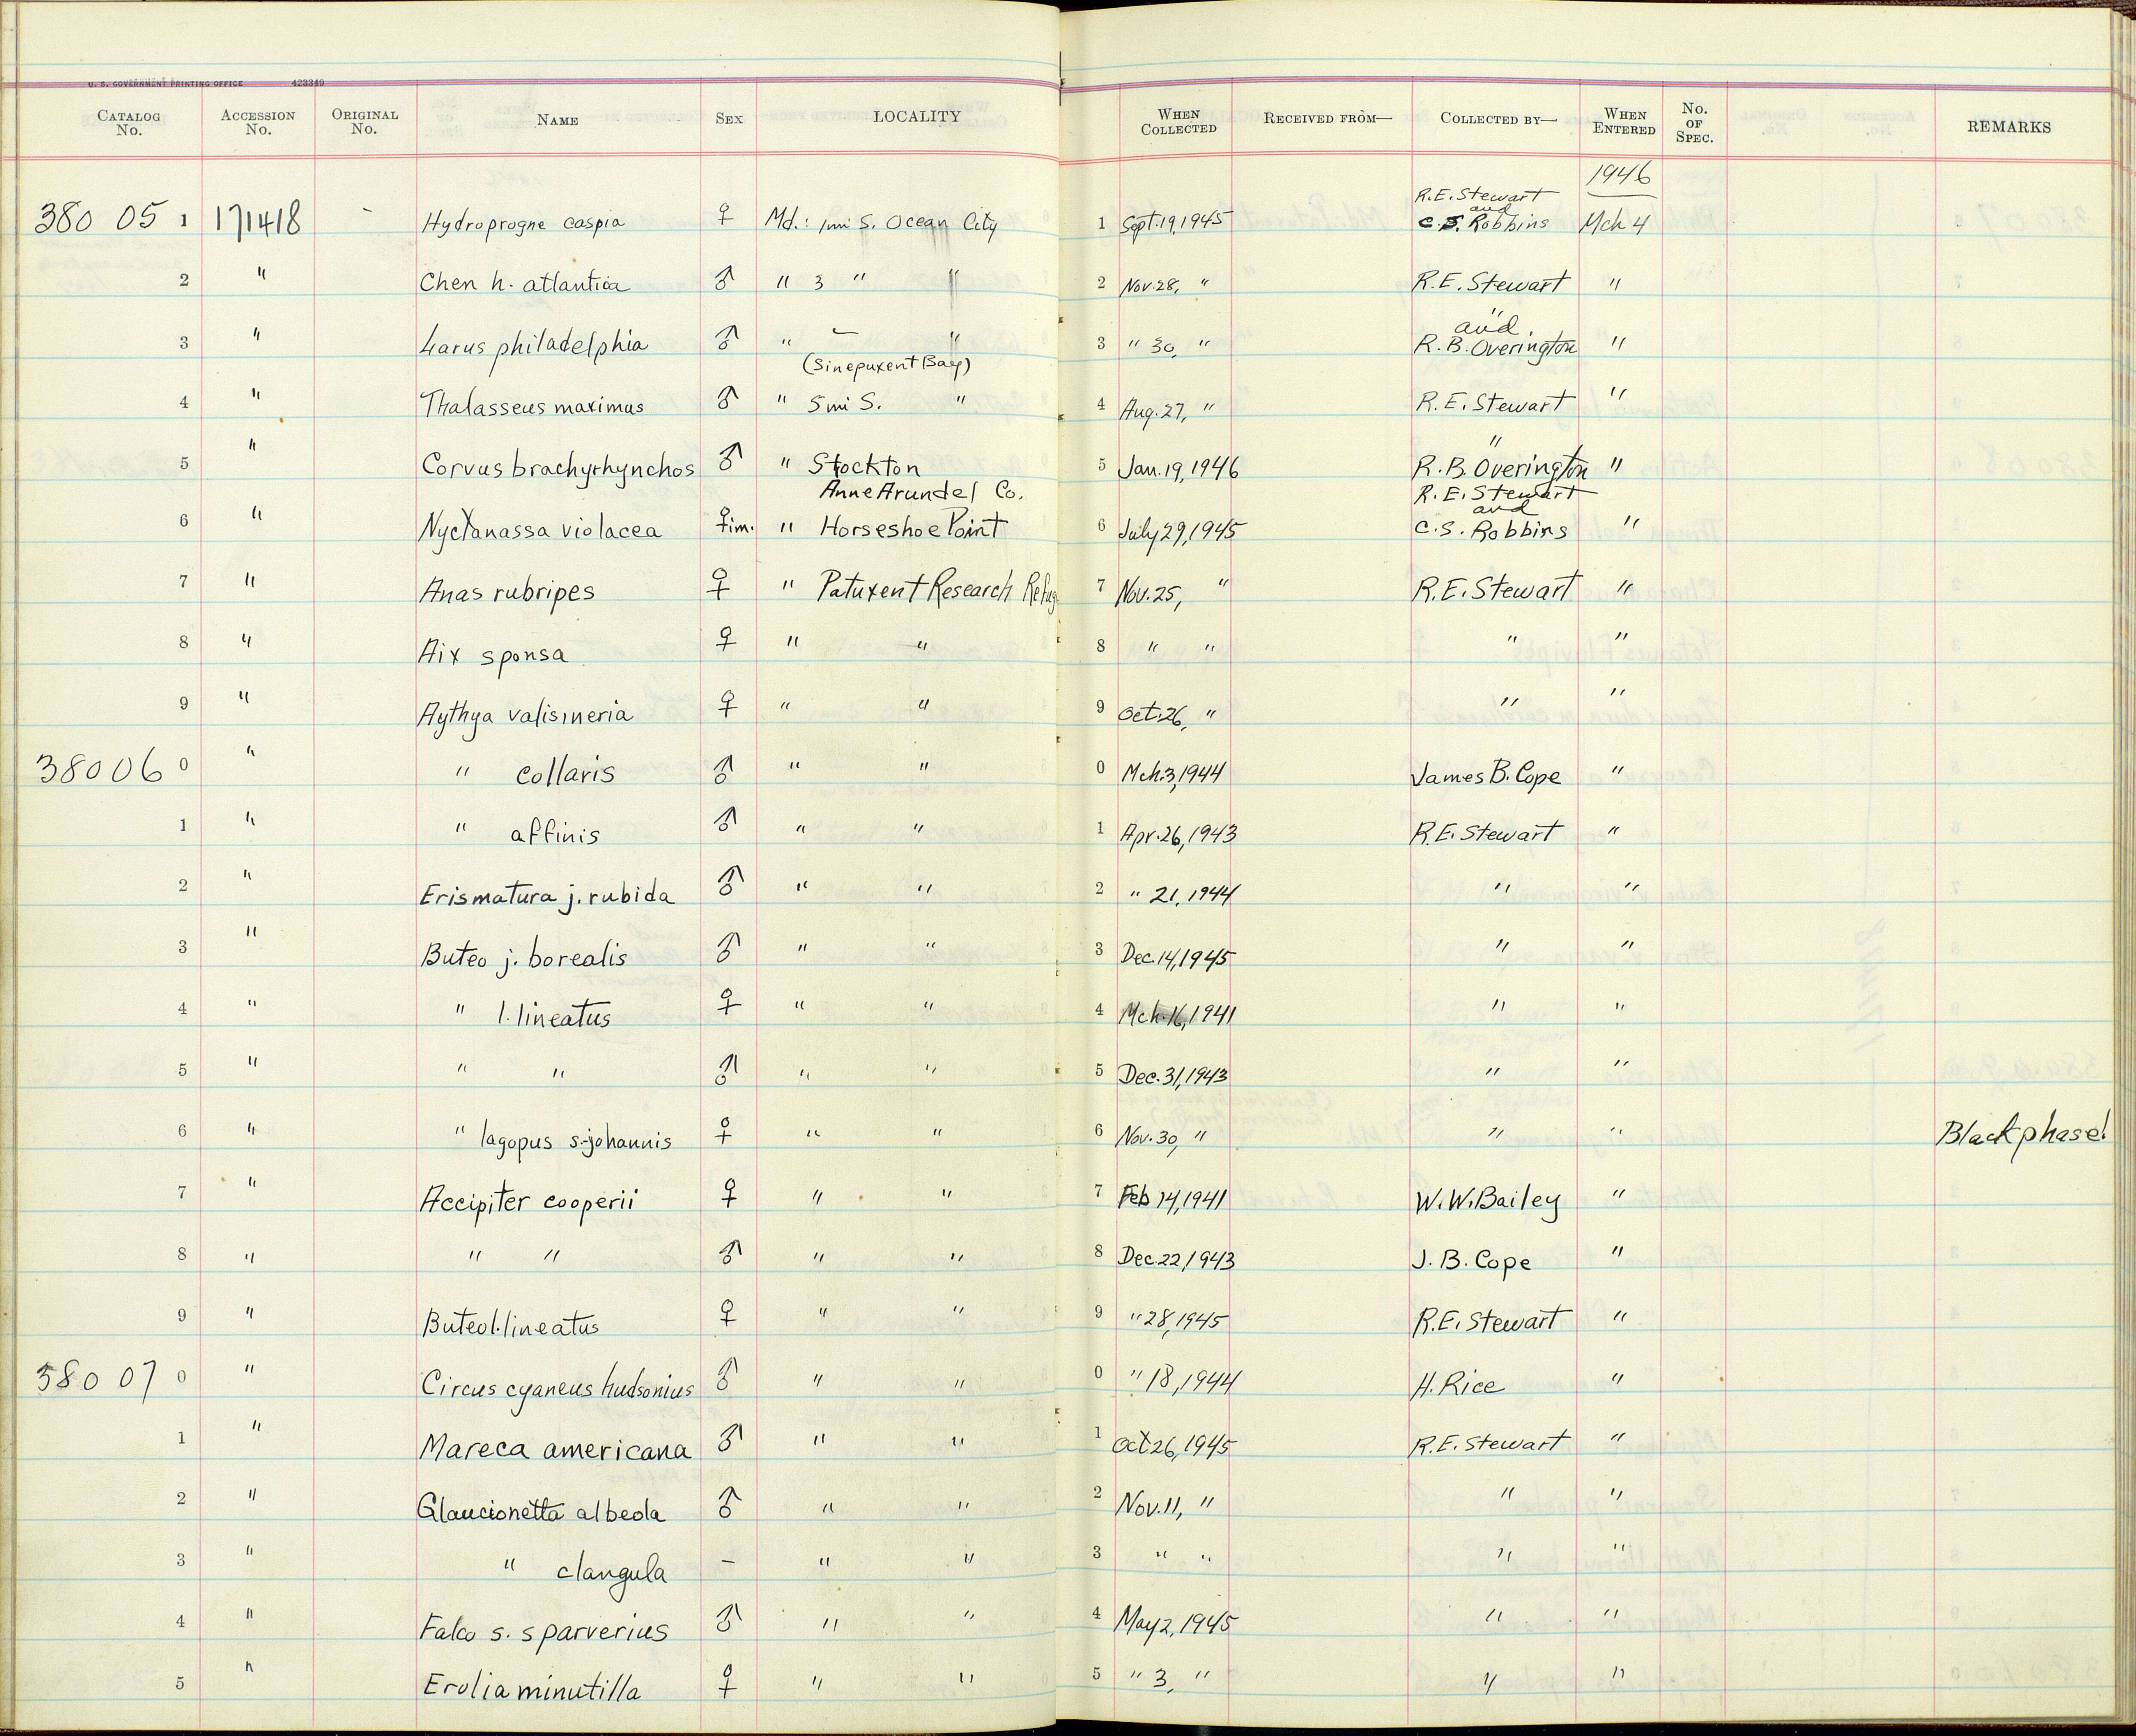 U. S. GOVERNMENT PRINTING OFFICE 423349
CATALOG No. ACCESSION No. ORIGINAL No. NAME SEX LOCALITY WHEN COLLECTED RECEIVED FROM— COLLECTED BY— WHEN ENTERED No. OF SPEC. REMARKS
1946
R.E. Stewart and
380 05 1 171418 - Hydroprogne caspia ♀ Md.: 1mi S. Ocean City 1 Sept. 19, 1945 C.S. Robbins Mch 4
2 " Chen h. atlantica ♂ " 3 " " 2 Nov. 28, " R.E. Stewart "
" and
3 " Larus philadelphia ♂ " — " 3 " 30, " R.B. Overington "
(Sinepuxent Bay)
4 " Thalasseus maximus ♂ " 5 mi S. " 4 Aug. 27, " R.E. Stewart "
"
5 " Corvus brachyrhynchos ♂ " Stockton 5 Jan. 19, 1946 R.B. Overington "
Anne Arundel Co. R.E. Stewart and
6 " Nyctanassa violacea ♀ im. " Horseshoe Point 6 July 29, 1945 C.S. Robbins "
7 " Anas rubripes ♀ " Patuxent Research Refug 7 Nov. 25, " R.E. Stewart "
8 " Aix sponsa ♀ " " 8 " " " "
9 " Aythya valisineria ♀ " " 9 Oct. 26, " " "
38006 0 " " collaris ♂ " " 0 Mch. 3, 1944 James B. Cope "
1 " " affinis ♂ " " 1 Apr. 26, 1943 R.E. Stewart "
2 " Erismatura j. rubida ♂ " " 2 " 21, 1944 " "
3 " Buteo j. borealis ♂ " " 3 Dec. 14, 1945 " "
4 " " l. lineatus ♀ " " 4 Mch. 16, 1941 " "
5 " " " ♂ " " 5 Dec. 31, 1943 " "
6 " " lagopus s.-johannis ♀ " " 6 Nov. 30, " " " Black phase!
7 " Accipiter cooperii ♀ " " 7 Feb 14, 1941 W.W. Bailey "
8 " " " ♂ " " 8 Dec. 22, 1943 J.B. Cope "
9 " Buteo l. lineatus ♀ " " 9 " 28, 1945 R.E. Stewart "
380 07 0 " Circus cyaneus hudsonius ♂ " " 0 " 18, 1944 H. Rice "
1 " Mareca americana ♂ " " 1 Oct 26, 1945 R.E. Stewart "
2 " Glaucionetta albeola ♂ " " 2 Nov. 11, " " "
3 " " clangula — " " 3 " " " "
4 " Falco s. sparverius ♂ " " 4 May 2, 1945 " "
5 " Erolia minutilla ♀ " " 5 " 3, " " "